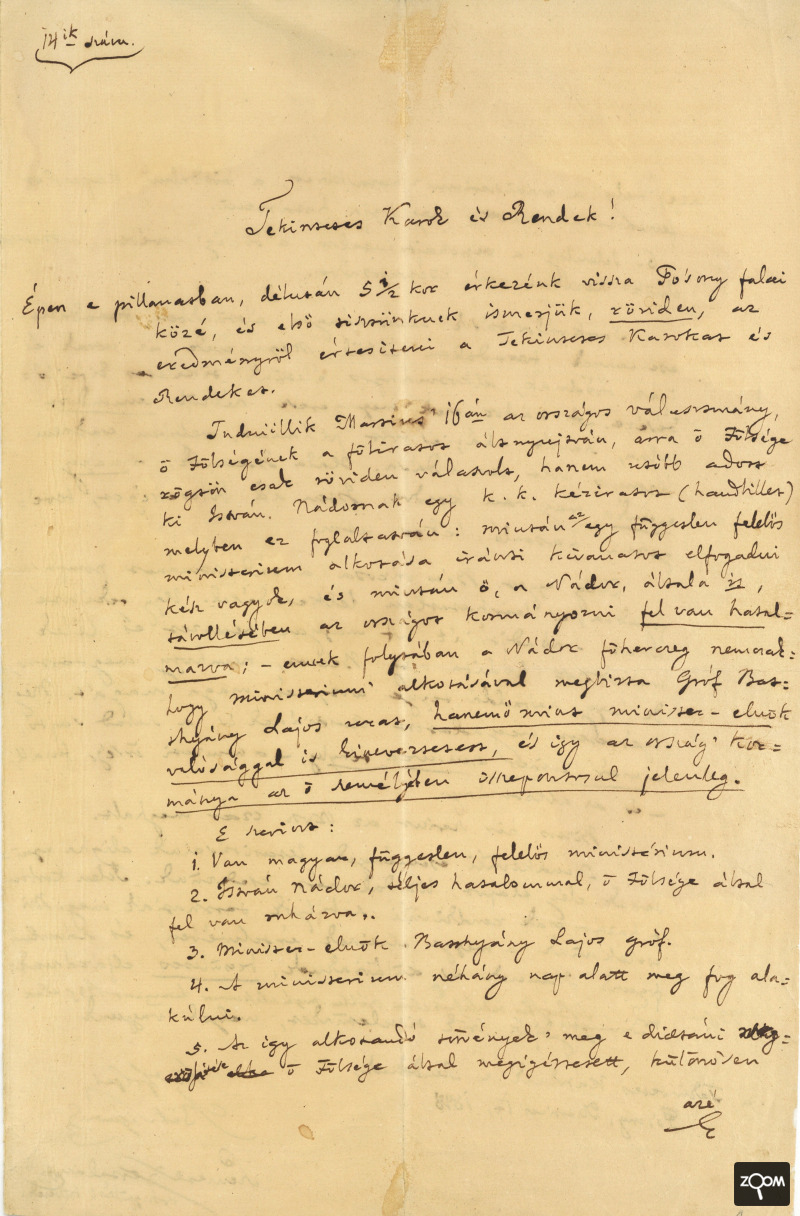 14ik szám.
Tekintetes Karok és Rendek!
Épen e pillanatban, délután 5 1/2 kor érkezénk vissza Posony falai
közé, és első tisztünknek ismerjük, röviden, az
eredményről értesíteni a Tekintetes Karokat és
Rendeket.
Tudniillik Martius' 16án az országos választmány,
ő Fölségének a föliratot általnyujtván, arra ő Fölsége
rögtön csak röviden válaszolt, hanem utóbb adott
ki István Nádornak egy k. k. kéziratot (handbillet)
melyben ez foglaltatván: miután az egy független felelős
ministerium alkotása iránti kivánatot elfogadni
kész vagyok, és miután ő, a Nádor, általa is,
távollétében az országot kormányozni fel van hatal=
mazva; – ennek folytában a Nádor főherceg nemcsak
hogy ministerium alkotásával megbizta Gróf Bat=
thyány Lajos urat, hanem ő mint minister-elnök
valósággal is kineveztetett, és igy az ország' kor=
mánya az ő személyében összpontosul jelenleg.
E szerint:
1. Van magyar, független, felelős ministérium.
2. István Nádor, teljes hatalommal, ő Fölsége által
fel van ruházva.
3. Minister-elnök Batthyány Lajos gróf.
4. A ministerium néhány nap alatt meg fog ala=
kúlni.
5. Az igy alkotandó törvények' meg e diaetáni
ő Fölsége által megigértetett, különösen
azé
ZOOM